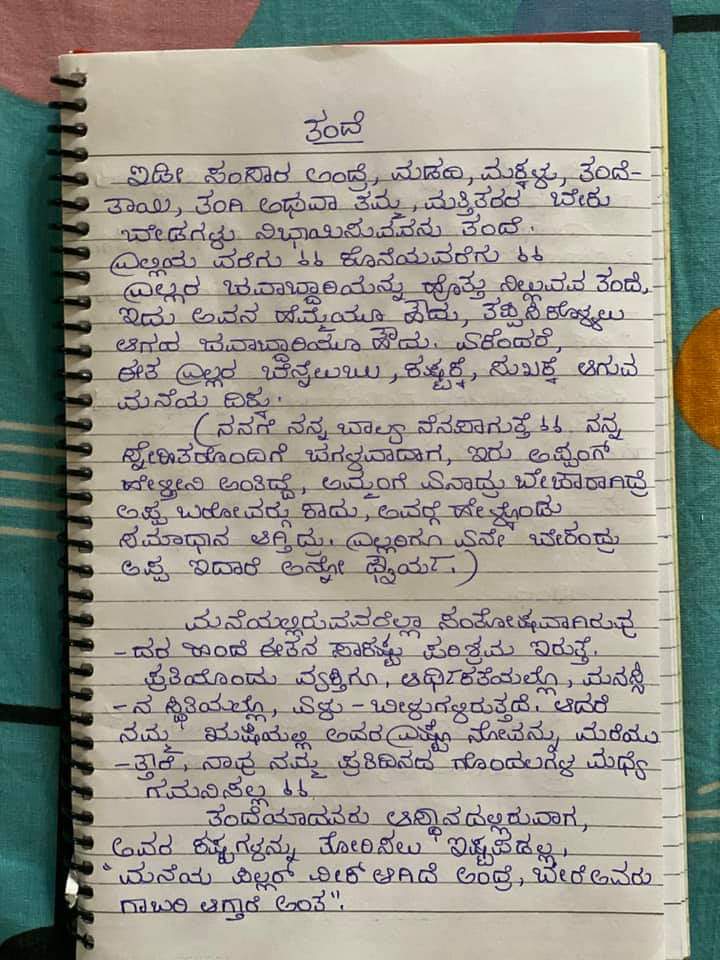 ತಂದೆ
ಇಡೀ ಸಂಸಾರ ಅಂದ್ರೆ, ಮಡದಿ, ಮಕ್ಕಳು, ತಂದೆ-
ತಾಯಿ, ತಂಗಿ ಅಥವಾ ತಮ್ಮ, ಮತ್ತಿತರರ ಬೇಕು
ಬೇಡಗಳು ನಿಭಾಯಿಸುವವನು ತಂದೆ.
ಎಲ್ಲಿಯ ವರೆಗು ಓ ಓ ಕೊನೆಯವರೆಗು ಓ ಓ
ಎಲ್ಲರ ಜವಾಬ್ದಾರಿಯನ್ನು ಹೊತ್ತು ನಿಲ್ಲುವವ ತಂದೆ,
ಇದು ಅವನ ಹೆಮ್ಮೆಯೂ ಹೌದು, ತಪ್ಪಿಸಿಕೊಳ್ಳಲು
ಆಗದ ಜವಾಬ್ದಾರಿಯೂ ಹೌದು. ಏಕೆಂದರೆ,
ಈತ ಎಲ್ಲರ ಬೆನ್ನೆಲುಬು, ಕಷ್ಟಕ್ಕೆ, ಸುಖಕ್ಕೆ ಆಗುವ
ಮನೆಯ ದಿಕ್ಕು.
(ನನಗೆ ನನ್ನ ಬಾಲ್ಯ ನೆನಪಾಗುತ್ತೆ ಓ ಓ ನನ್ನ
ಸ್ನೇಹಿತರೊಂದಿಗೆ ಜಗಳವಾದಾಗ, ಇರು ಅಪ್ಪಂಗ್
ಹೇಳ್ತೀನಿ ಅಂತಿದ್ದೆ, ಅಮ್ಮಂಗೆ ಏನಾದ್ರು ಬೇಜಾರಾಗಿದ್ರೆ
ಅಪ್ಪ ಬರೋವರ್ಗು ಕಾದು, ಅವರ್ಗೆ ಹೇಳ್ಕೊಂಡು
ಸಮಾಧಾನ ಆಗ್ತಿದ್ರು. ಎಲ್ಲರಿಗೂ ಏನೇ ಬೇಕಂದ್ರು
ಅಪ್ಪ ಇದಾರೆ ಅನ್ನೋ ಧೈರ್ಯ.)
ಮನೆಯಲ್ಲಿರುವವರೆಲ್ಲಾ ಸಂತೋಷವಾಗಿರುವು
-ದರ ಹಿಂದೆ ಈತನ ಸಾಕಷ್ಟು ಪರಿಶ್ರಮ ಇರುತ್ತೆ.
ಪ್ರತಿಯೊಂದು ವ್ಯಕ್ತಿಗೂ, ಆರ್ಥಿಕತೆಯಲ್ಲೊ, ಮನಸ್ಸಿ
-ನ ಸ್ಥಿತಿಯಲ್ಲೊ, ಏಳು-ಬೀಳುಗಳಿರುತ್ತದೆ. ಆದರೆ
ನಮ್ಮ ಖುಷಿಯಲ್ಲಿ ಅವರ ಎಷ್ಟೊ ನೋವನ್ನು ಮರೆಯು
-ತ್ತಾರೆ, ನಾವು ನಮ್ಮ ಪ್ರತಿದಿನದ ಗೊಂದಲಗಳ ಮಧ್ಯೆ
ಗಮನಿಸಲ್ಲ ಓ ಓ
ತಂದೆಯಾದವರು ಆ ಸ್ಥಾನದಲ್ಲಿರುವಾಗ,
ಅವರ ಕಷ್ಟಗಳನ್ನು ತೋರಿಸಲು ಇಷ್ಟಪಡಲ್ಲ,
"ಮನೆಯ ಪಿಲ್ಲರ್ ವೀಕ್ ಆಗಿದೆ ಅಂದ್ರೆ, ಬೇರೆಅವರು
ಗಾಬರಿ ಆಗ್ತಾರೆ ಅಂತ".